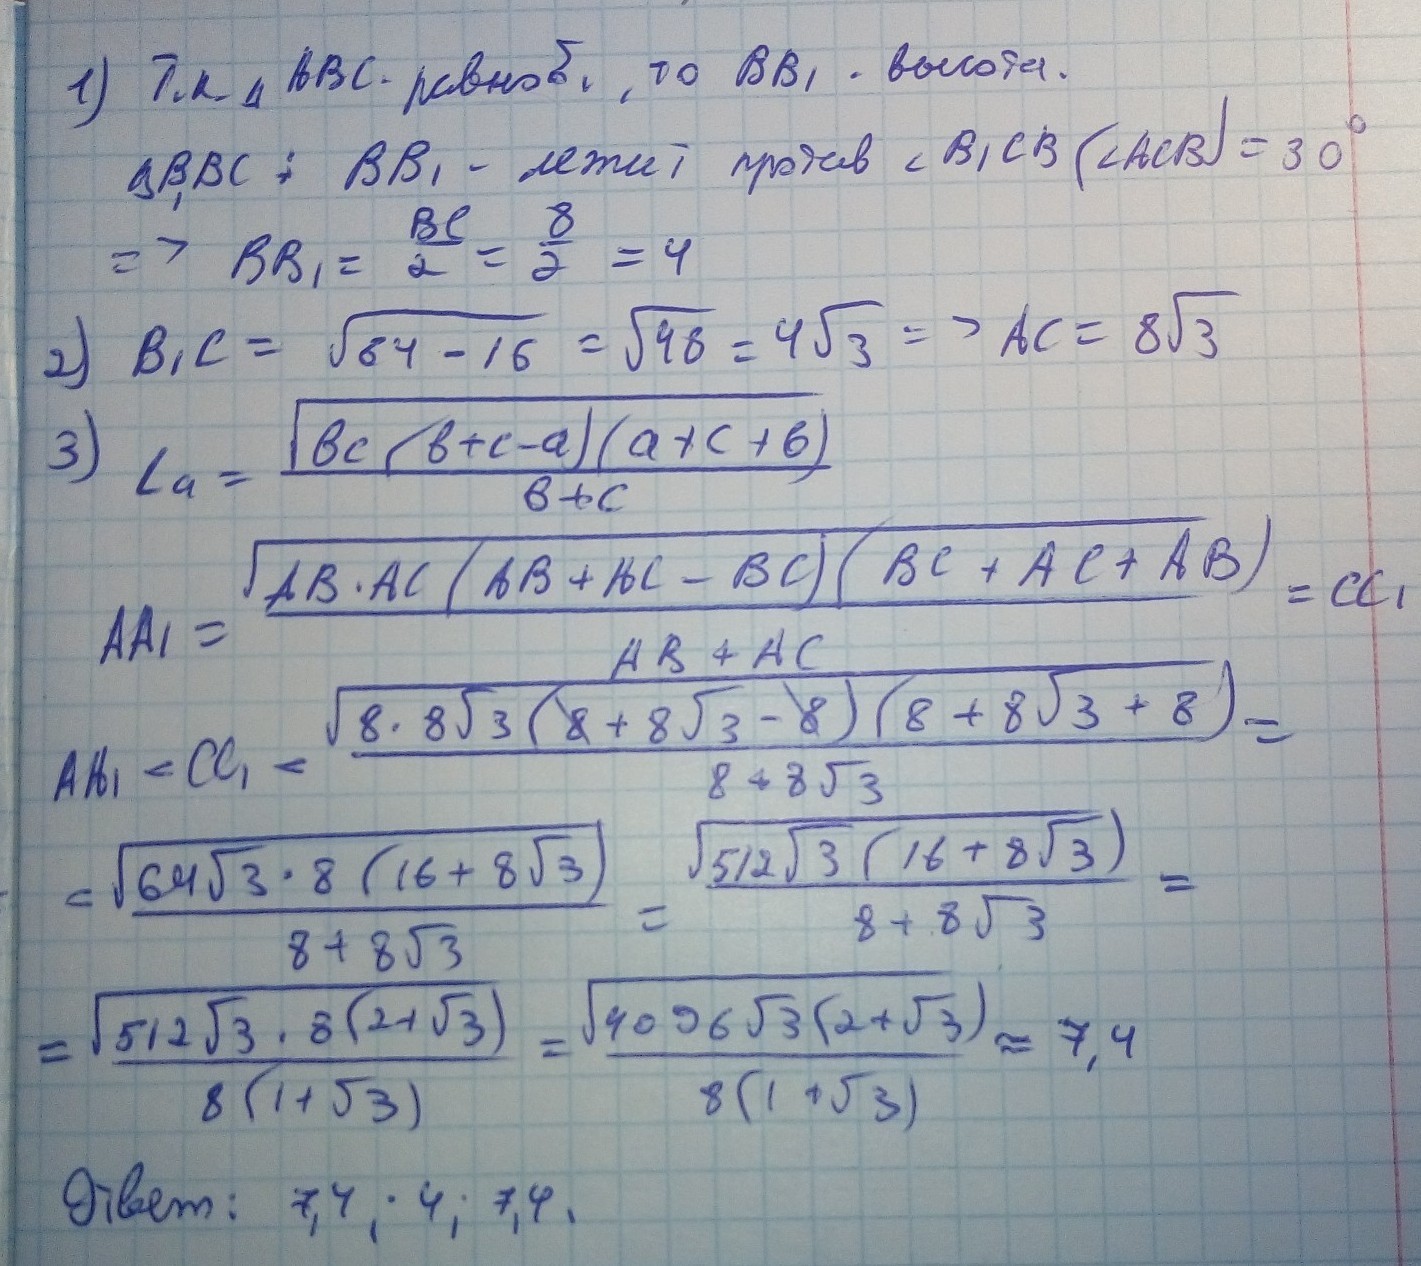 1) Т.к. △ABC - равноб., то BB₁ - высота.
△B₁BC: BB₁ - лежит против ∠B₁CB (∠ACB) = 30°
=> BB₁ = BC/2 = 8/2 = 4
2) B₁C = √(64 - 16) = √48 = 4√3 => AC = 8√3
3) La = √(bc(b+c-a)(a+c+b))/(b+c)
AA₁ = √(AB·AC(AB+AC-BC)(BC+AC+AB))/(AB+AC) = CC₁
AA₁ = CC₁ = √(8·8√3(8+8√3-8)(8+8√3+8))/(8+8√3) =
= √(64√3·8(16+8√3))/(8+8√3) = √(512√3(16+8√3))/(8+8√3) =
= √(512√3·8(2+√3))/(8(1+√3)) = √(4096√3(2+√3))/(8(1+√3)) ≈ 7,4
Ответ: 7,4; 4; 7,4.